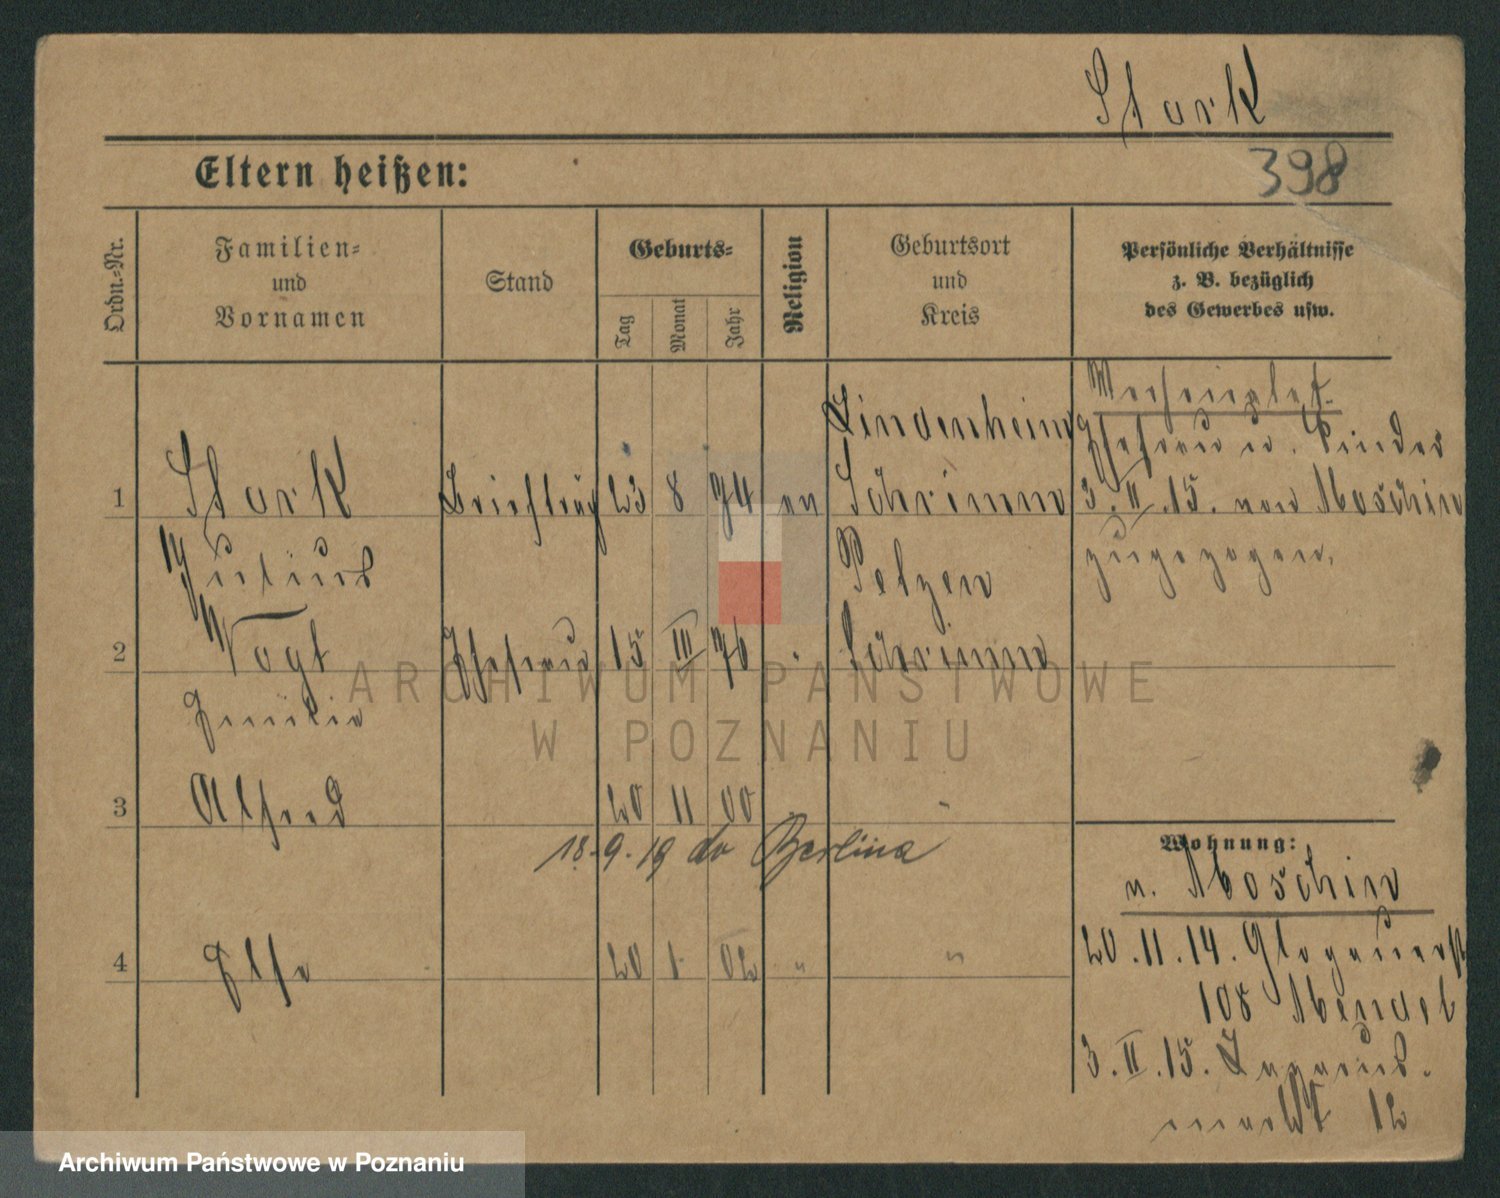 Stark
Eltern heißen:
398
Ordn.-Nr.
Familien-
und
Vornamen
Stand
Geburts-
Tag
Monat
Jahr
Religion
Geburtsort
und
Kreis
Persönliche Verhältnisse
z. B. bezüglich
des Gewerbes usw.
1
Stark
Julius
Briefträg
23 8 74 ev
Lindenheim
Schrimm
Ehefrau u. Kinder
3.II.15. von Moschin
zugezogen.
2
Vogt
Emilie
Ehefrau
15 III 76
"
Petzen
Schrimm
3
Alfred
20 11 00
"
18.9.19 do Berlina
4
Else
20 1 02
"
"
Wohnung:
n. Moschin
20.11.14. Glogauerst
105 Mendel
3.II.15. Lazarus-
markt 12
ARCHIWUM PAŃSTWOWE
W POZNANIU
Archiwum Państwowe w Poznaniu